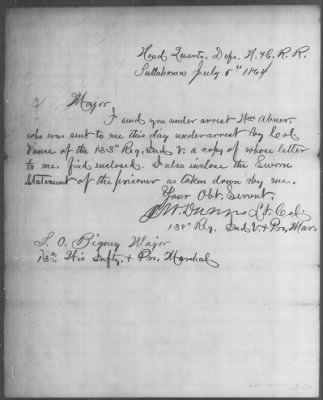 Head Quarts. Defs. N. & C. R. R.
Tullahoma July 5th 1864
Major
I send you under arrest Wm Abner,
who was sent to me this day under arrest by Col
Vance of the 133d Reg. Ind V. a copy of whose letter
to me find inclosed. I also inclose the Sworn
Statement of the prisoner as taken down by me.
Your Obt. Servnt.
Lt. Col.
Reg. Ind V. & Pro. Mar.
S. O. Bigney Major
13th Wis Infty. & Pro. Marshal